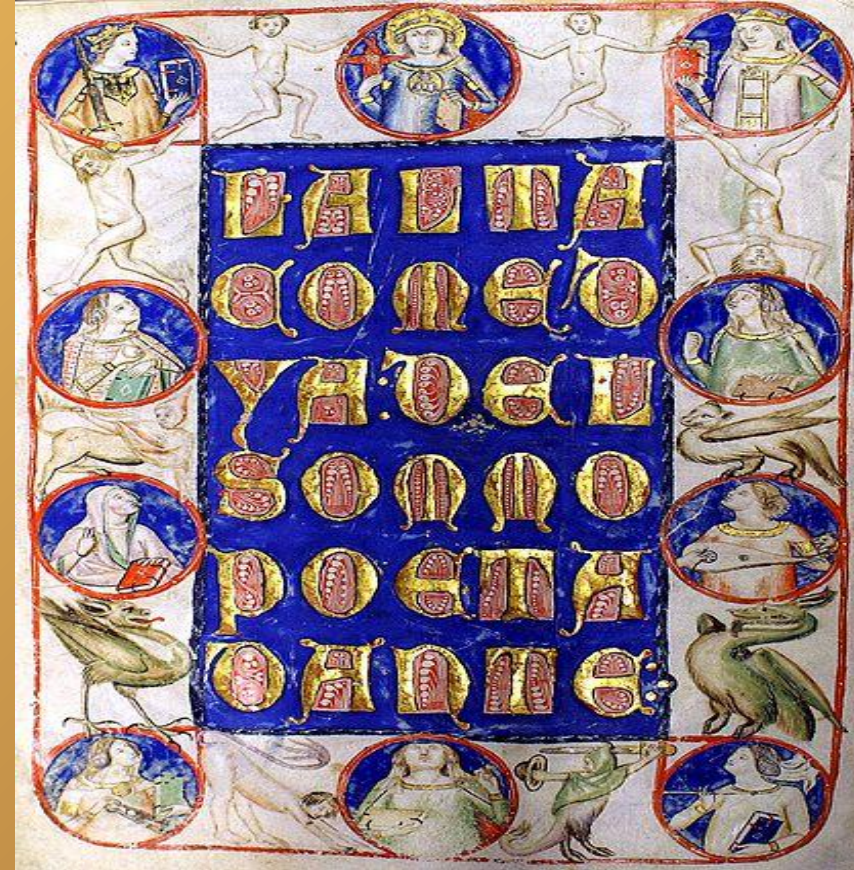 L·ALTA
COMED
YA:DEL
SOMMO
POETA
DANTE: